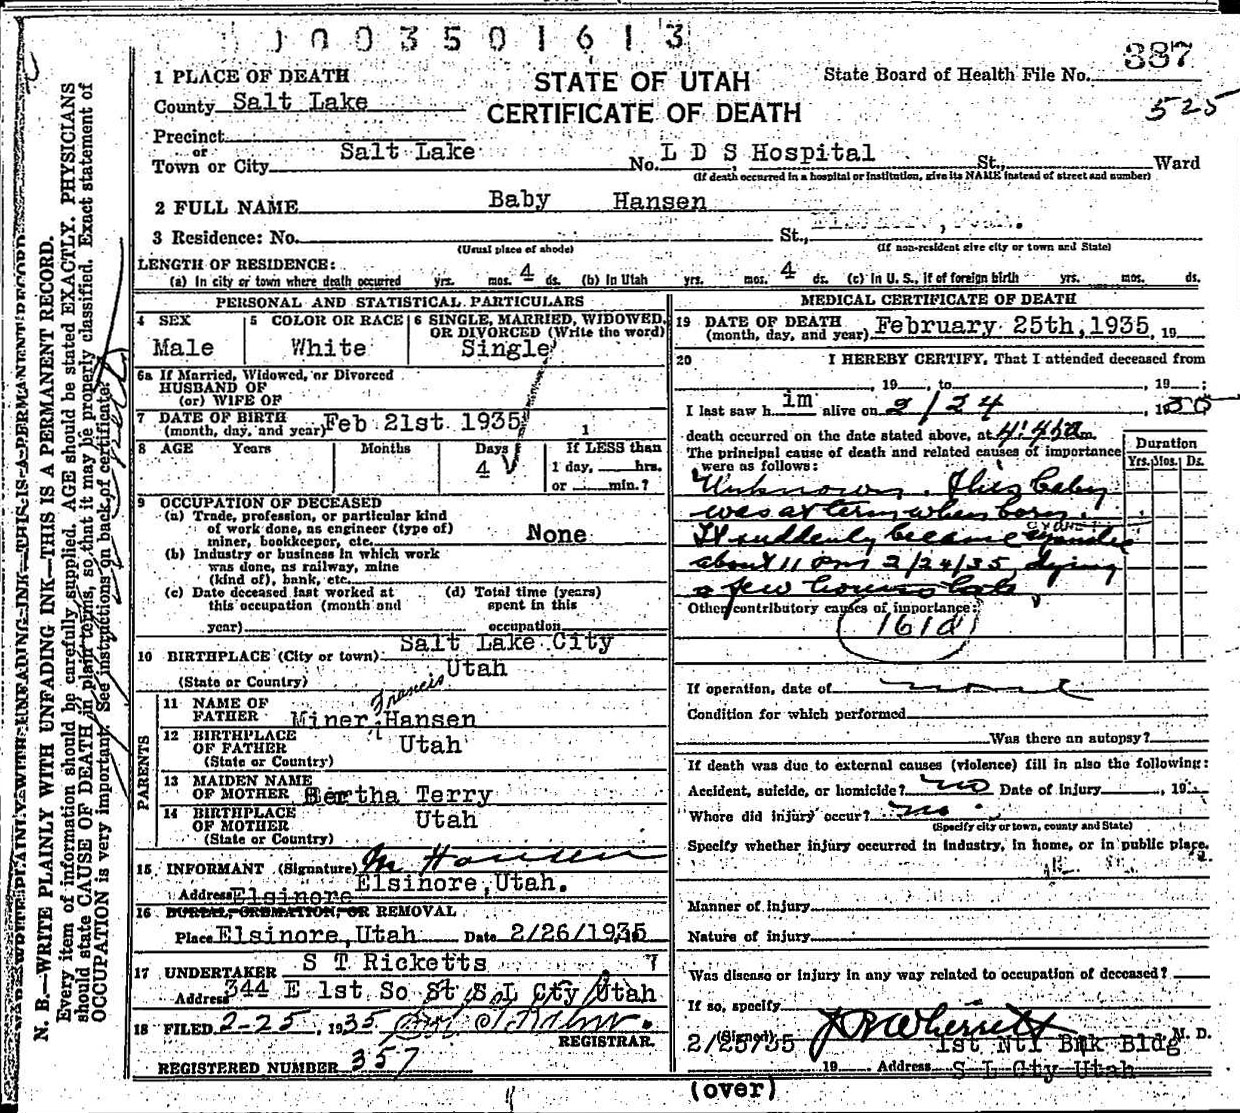 0 0 3 5 0 1 6 1 3
387
525
STATE OF UTAH
CERTIFICATE OF DEATH
State Board of Health File No.
1 PLACE OF DEATH
County Salt Lake
Precinct
or
Town or City Salt Lake No. L D S Hospital St., Ward
(If death occurred in a hospital or institution, give its NAME instead of street and number)
2 FULL NAME Baby Hansen
3 Residence: No. St.,
(Usual place of abode) (If non-resident give city or town and State)
LENGTH OF RESIDENCE:
(a) In city or town where death occurred yrs. mos. 4 ds. (b) In Utah yrs. mos. 4 ds. (c) In U. S., if of foreign birth yrs. mos. ds.
PERSONAL AND STATISTICAL PARTICULARS
4 SEX Male
5 COLOR OR RACE White
6 SINGLE, MARRIED, WIDOWED, OR DIVORCED (Write the word) Single
6a If Married, Widowed, or Divorced
HUSBAND OF
(or) WIFE OF
7 DATE OF BIRTH
(month, day, and year) Feb 21st 1935 1
8 AGE Years Months Days 4 If LESS than
1 day, hrs.
or min.?
9 OCCUPATION OF DECEASED
(a) Trade, profession, or particular kind
of work done, as engineer (type of)
miner, bookkeeper, etc. None
(b) Industry or business in which work
was done, as railway, mine
(kind of), bank, etc.
(c) Date deceased last worked at
this occupation (month and
year)
(d) Total time (years)
spent in this
occupation
10 BIRTHPLACE (City or town) Salt Lake City
(State or Country) Utah
PARENTS
11 NAME OF
FATHER Miner Francis Hansen
12 BIRTHPLACE
OF FATHER Utah
(State or Country)
13 MAIDEN NAME
OF MOTHER Bertha Terry
14 BIRTHPLACE
OF MOTHER Utah
(State or Country)
15 INFORMANT (Signature) M Hansen
Address Elsinore Elsinore, Utah.
16 BURIAL, CREMATION, OR REMOVAL
Place Elsinore, Utah Date 2/26/1935
17 UNDERTAKER S T Ricketts
Address 344 E 1st So St S L Cty Utah
18 FILED 2-25, 1935
REGISTRAR.
REGISTERED NUMBER 357
MEDICAL CERTIFICATE OF DEATH
19 DATE OF DEATH
(month, day, and year) February 25th, 1935, 19
20 I HEREBY CERTIFY, That I attended deceased from
, 19 , to , 19 ;
I last saw h im alive on 2/24, 1935
death occurred on the date stated above, at 4:45a m.
The principal cause of death and related causes of importance
were as follows:
Duration
Yrs. Mos. Ds.
Unknown. This baby
was at term when born.
It suddenly became cyanotic
about 11 PM 2/24/35, dying
a few hours late
Other contributory causes of importance:
161d
If operation, date of none
Condition for which performed
Was there an autopsy?
If death was due to external causes (violence) fill in also the following:
Accident, suicide, or homicide? no Date of injury , 19
Where did injury occur? no
(Specify city or town, county and State)
Specify whether injury occurred in industry, in home, or in public place.
Manner of injury
Nature of injury
Was disease or injury in any way related to occupation of deceased?
If so, specify
(Signed) J R Wherrett M. D.
2/25/35 19 Address 1st Ntl Bnk Bldg
S L Cty Utah
(over)
N. B.—WRITE PLAINLY WITH UNFADING INK—THIS IS A PERMANENT RECORD.
Every item of information should be carefully supplied. AGE should be stated EXACTLY. PHYSICIANS
should state CAUSE OF DEATH in plain terms, so that it may be properly classified. Exact statement of
OCCUPATION is very important. See instructions on back of certificate.